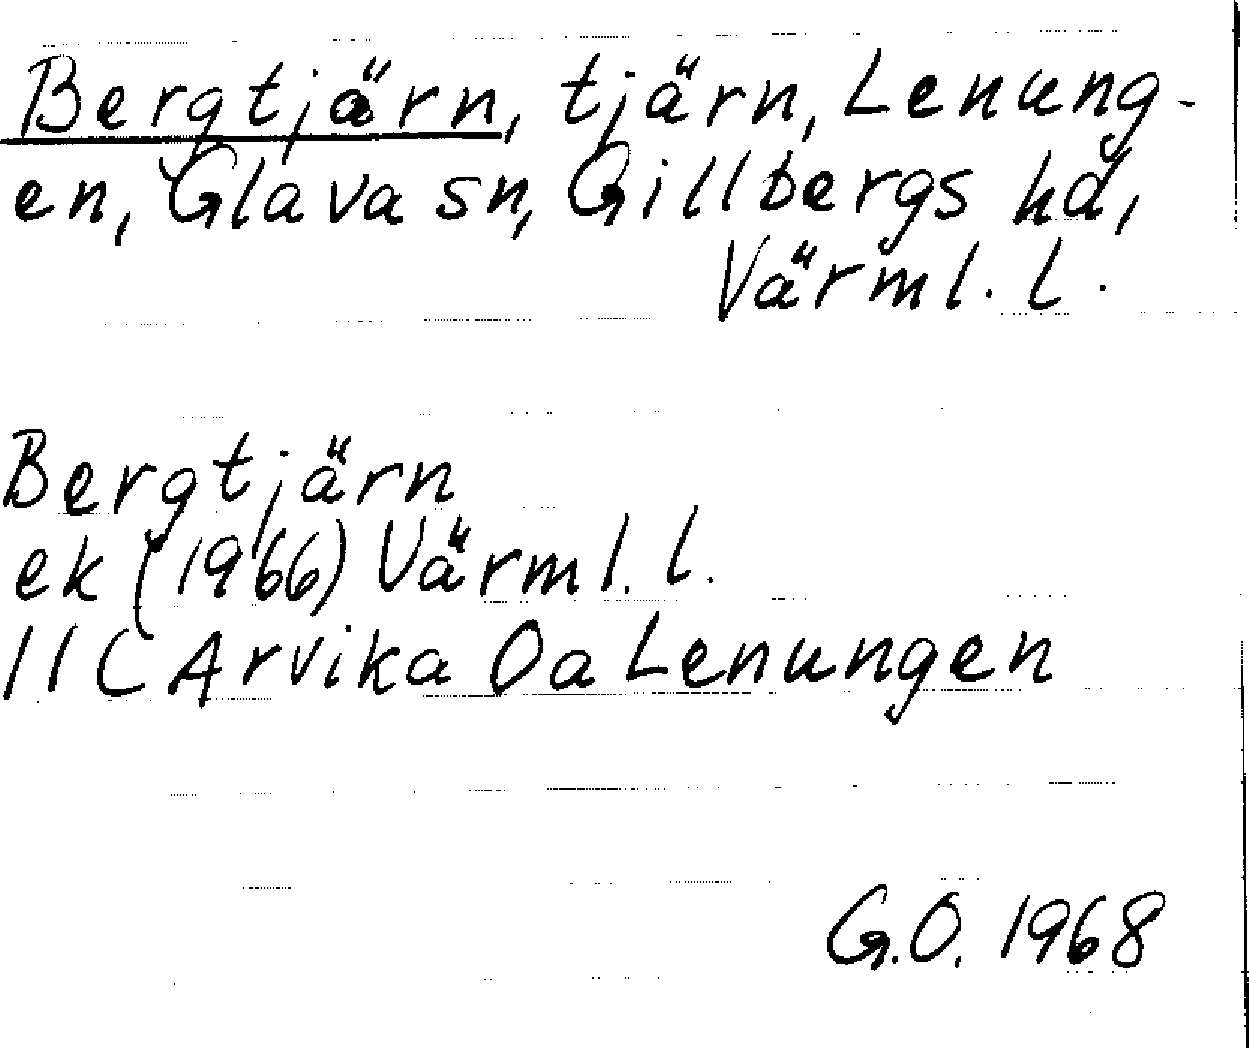 Bergtjärn, tjärn, Lenung-
en, Glava sn, Gillbergs hd,
Värml. l.
Bergtjärn
ek (1966) Värml. l.
11C Arvika 0a Lenungen
G.O. 1968